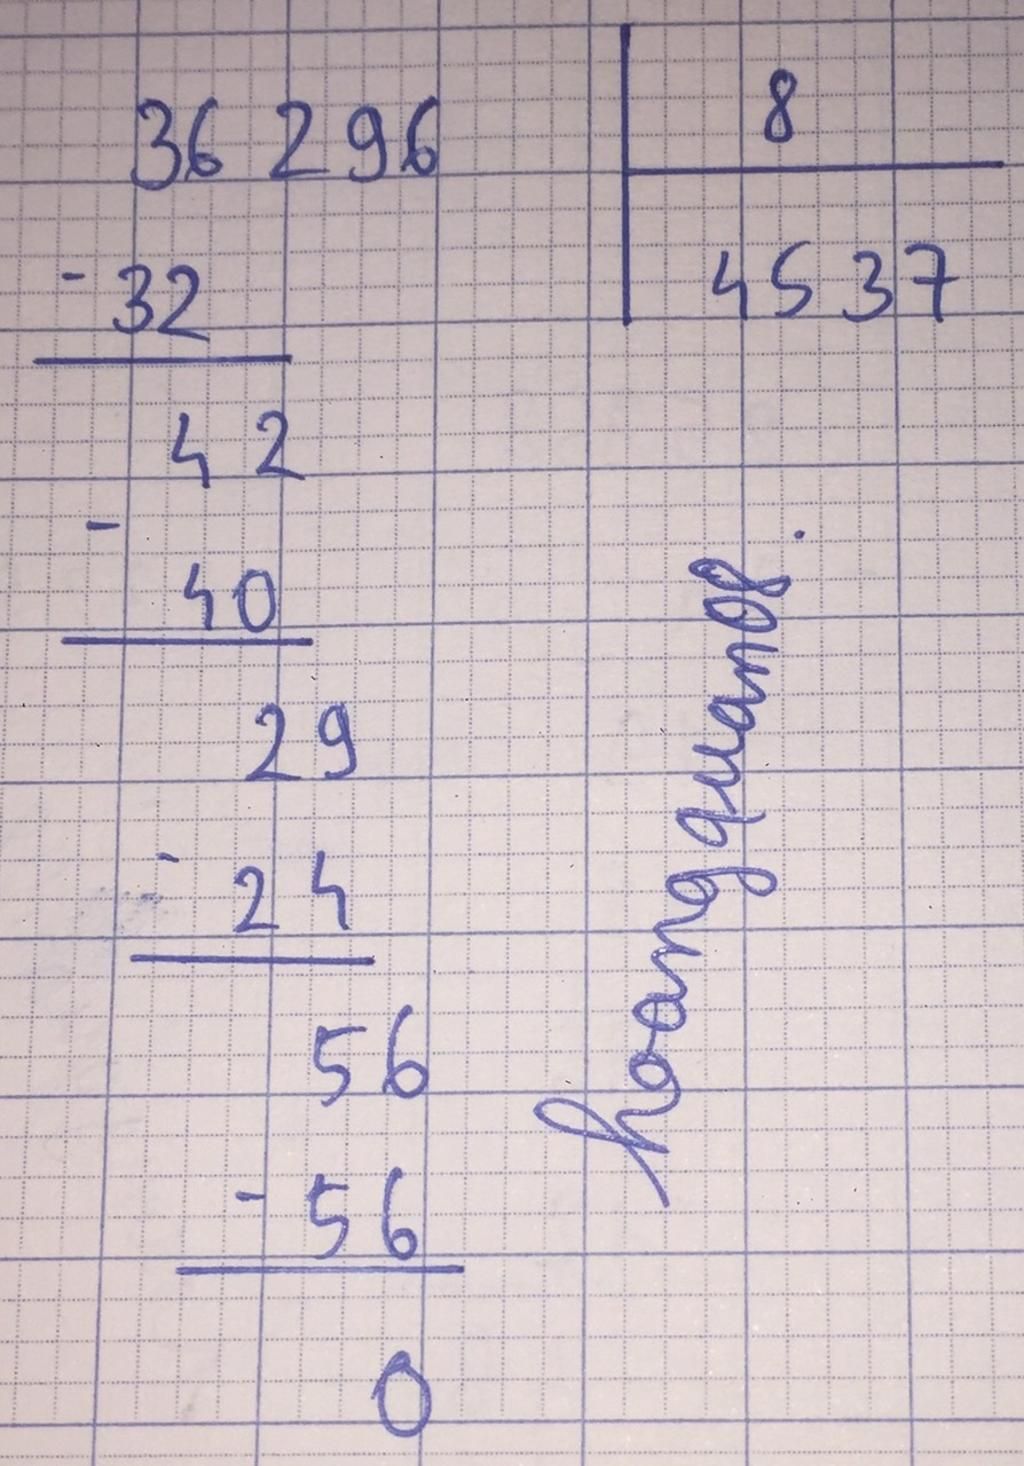 36 296 8
- 32 4537
42
-
40
29
- 24
56
- 56
0
hoangquang.